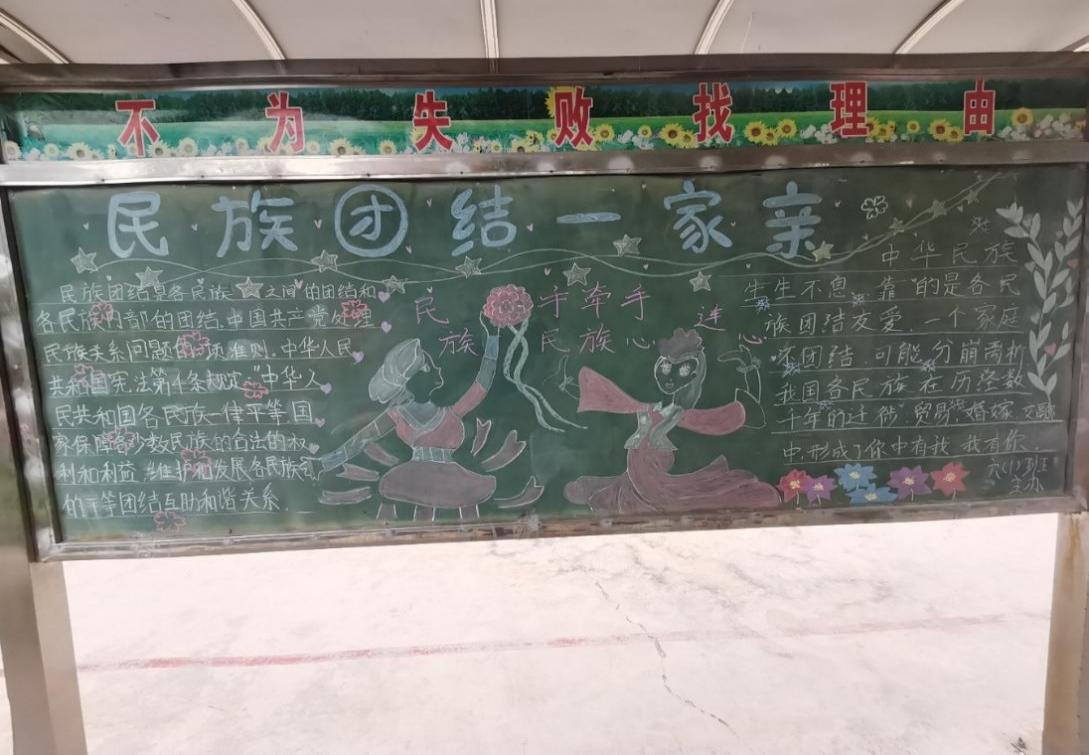 不为失败找理由
民族团结一家亲
民族团结是各民族之间的团结和
各民族内部的团结.中国共产党处理
民族关系问题的一项准则.中华人民
共和国宪法第4条规定:"中华人
民共和国各民族一律平等国
家保障各少数民族的合法的权
利和利益,维护和发展各民族
的平等团结互助和谐关系.
民族
手牵手
民族心连心
中华民族
生生不息 靠的是各民
族团结友爱.一个家庭
不团结.可能分崩离析
我国各民族在历经数
千年的迁徙 贸易 婚嫁 交融
中.形成了你中有我 我有你.
六(1)班
主办